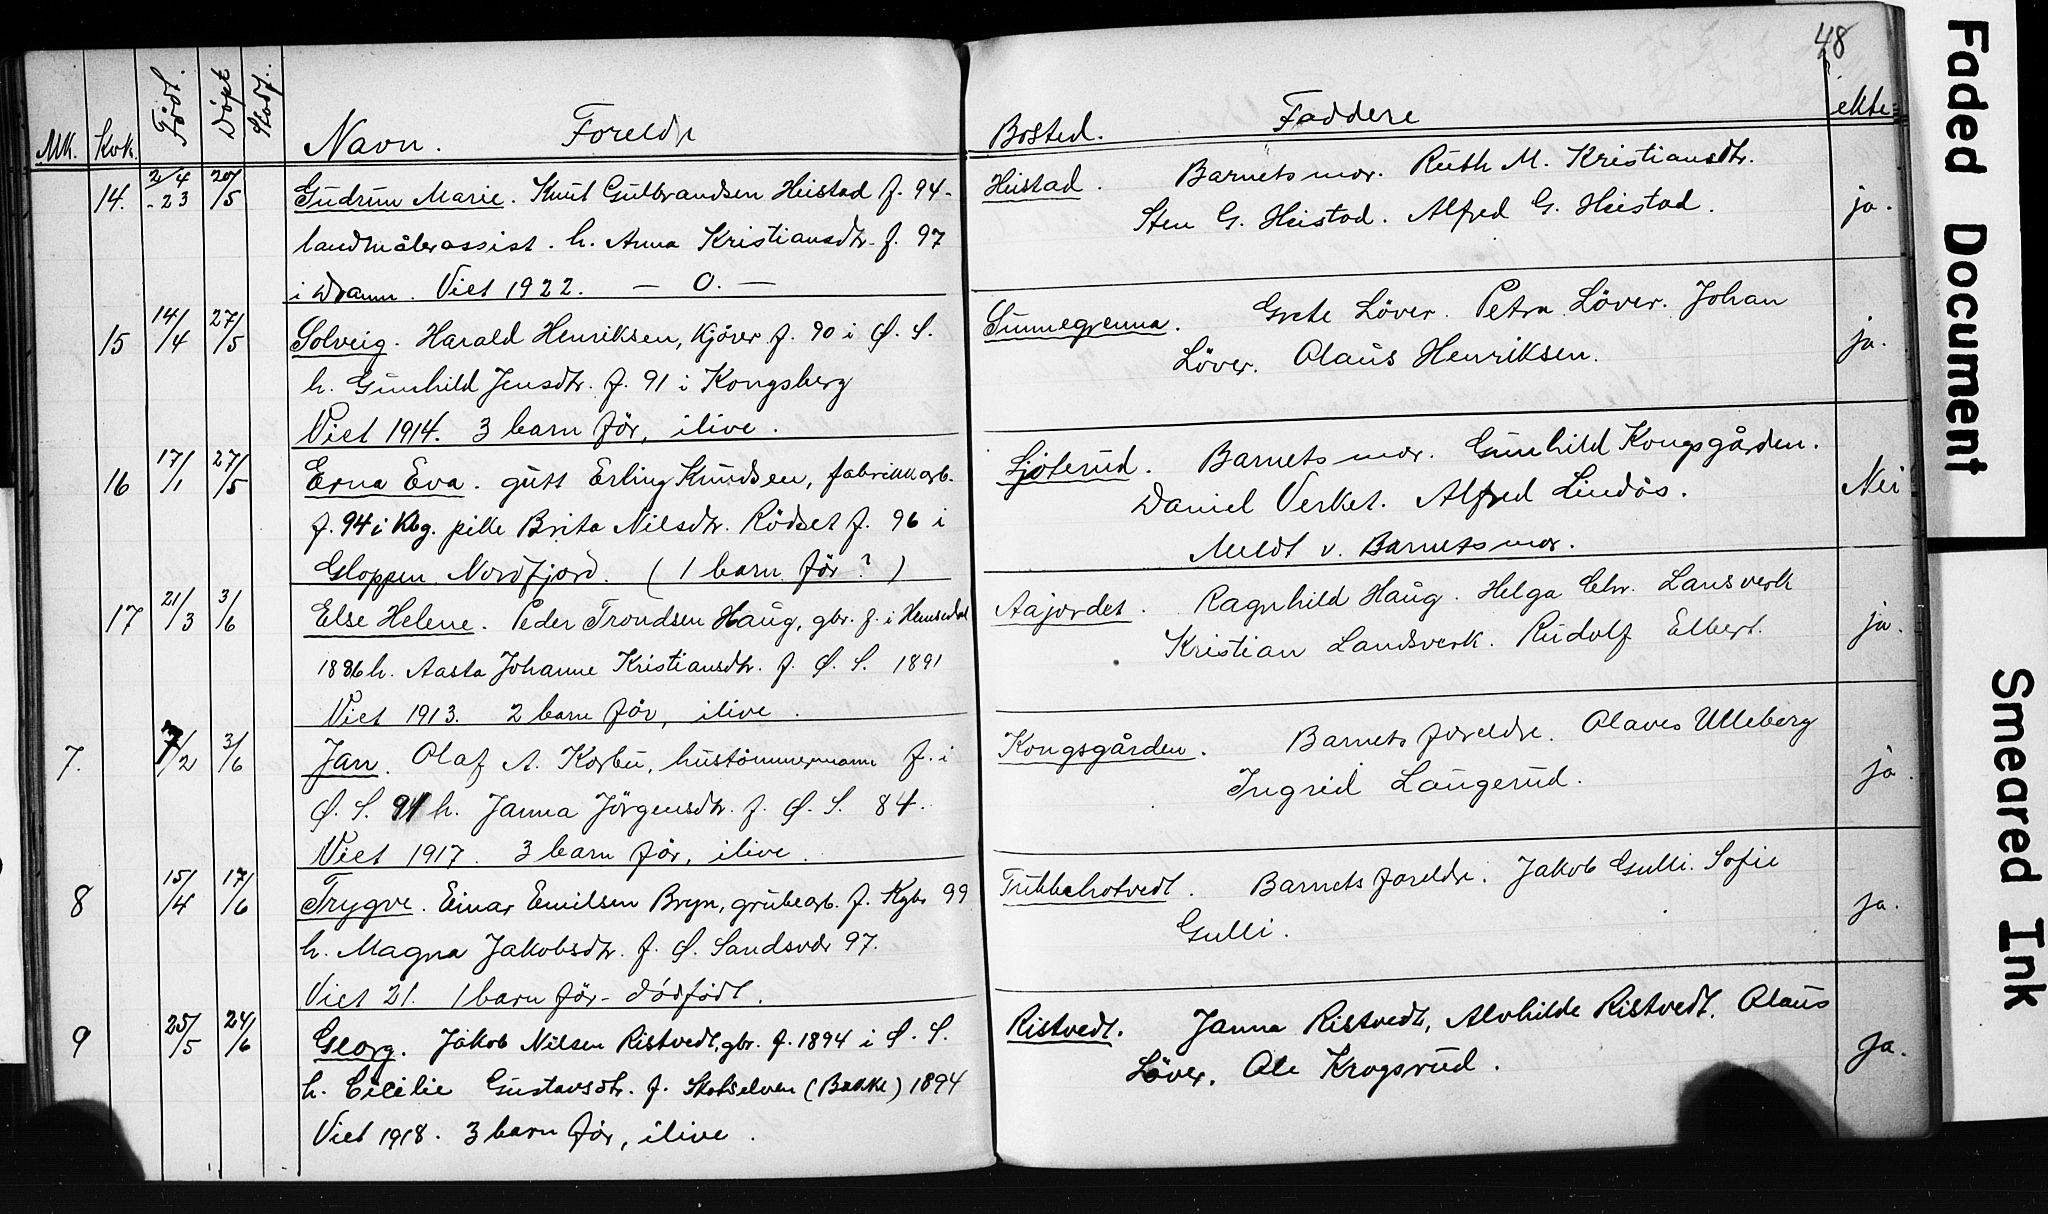 48
Mk. Kvk. Født. Döpt Stadf. Navn. Foreldr
Bosted. Faddere ekte
14. 2/4 -23 20/5 Gudrun Marie. Knut Gulbrandsen Hustad f. 94-
landmålerassist. h. Anna Kristiansdtr. f. 97
i Dramm. Viet 1922. — O. —
Hustad. Barnets mor. Ruth M. Kristiansdtr.
Sten G. Hustad. Alfred G. Hustad.
ja.
15 14/4 27/5 Solveig. Harald Henriksen, kjörer f. 90 i Ø. S.
h. Gunhild Jensdtr. f. 91 i Kongsberg
Viet 1914. 3 barn för, ilive.
Grete Löver. Petra Löver. Johan
Löver. Olaus Henriksen.
ja.
16 17/1 27/5 Erna Eva. gutt Erling Knudsen, fabrikkarb.
f. 94 i Kbg. pike Brita Nilsdtr. Rödset f. 96 i
Gloppen Nordfjord. (1 barn för?)
Ljoterud. Barnets mor. Gunhild Kongsgården.
Daniel Verket. Alfred Lindås.
Meldt v. Barnets mor.
Nei
17 21/3 3/6 Else Helene. Peder Trondsen Haug, gbr. f. i Hemsedal
1886 h. Aasta Johanne Kristiansdtr. f. Ø. S. 1891
Viet 1913. 2 barn för, ilive.
Aajordet. Ragnhild Haug. Helga Chr. Lansverk
Kristian Landsverk. Rudolf Elbert.
ja.
7. 7/2 3/6 Jan. Olaf A. Korbu, hustömmermann f. i
Ø. S. 91 h. Janna Jörgensdtr. f. Ø. S. 84.
Viet 1917. 3 barn för, ilive.
Kongsgården. Barnets foreldre. Olaves Ulleberg
Ingrid Laugerud.
ja.
8 15/4 17/6 Trygve. Einar Emilsen Bryn, grubearb. f. Kgbr 99
h. Magna Jakobsdtr. f. Ø. Sandsvær 97.
Viet 21. 1 barn för - dödfödt.
Tubbehotvedt. Barnets foreldr. Jakob Gulli. Sofie
Gulli.
ja.
9 25/5 24/6 Georg. Jakob Nilsen Ristvedt, gbr. f. 1894 i Ø. S.
h. Cecilie Gustavsdtr. f. Skotselven (Bakke) 1894
Viet 1918. 3 barn för, ilive.
Ristvedt. Janna Ristvedt, Alvhilde Ristvedt. Olaus
Löver. Ole Krogsrud.
ja.
Faded Document
Smeared Ink